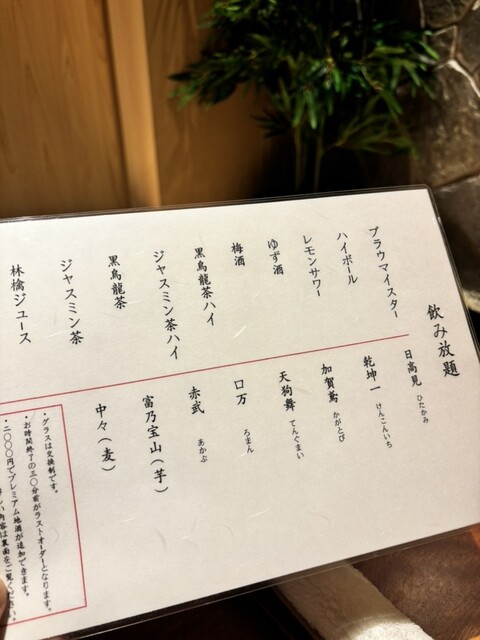 飲み放題
ブラウマイスター
ハイボール
レモンサワー
ゆず酒
梅酒
黒烏龍茶ハイ
ジャスミン茶ハイ
黒烏龍茶
ジャスミン茶
林檎ジュース
日高見 ひたかみ
乾坤一 けんこんいち
加賀鳶 かがとび
天狗舞 てんぐまい
口万 ろまん
赤武 あかぶ
富乃宝山（芋）
中々（麦）
・グラスは交換制です。
・お時間終了の三〇分前がラストオーダーとなります。
・二〇〇〇円でプレミアム地酒が追加できます。
しい内容は裏面をご覧ください。